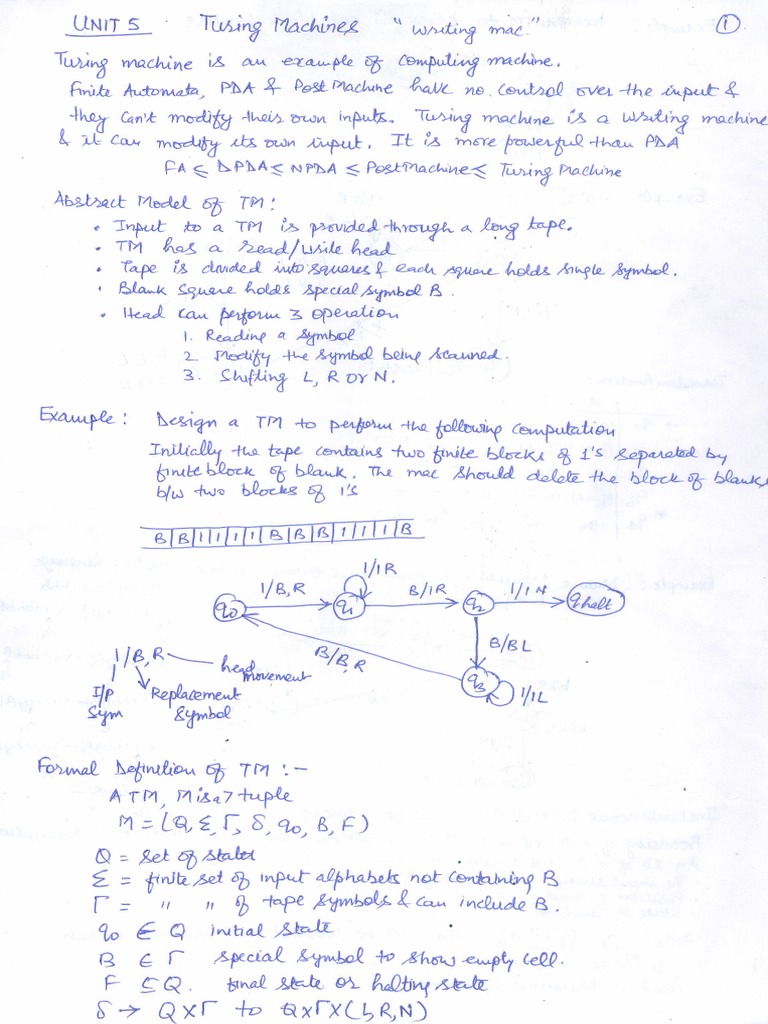 UNIT 5 Turing Machines "Writing mac." ①
Turing machine is an example of computing machine.
Finite Automata, PDA & Post Machine have no control over the input &
they can't modify their own inputs. Turing machine is a writing machine
& it can modify its own input. It is more powerful than PDA
FA ≤ DPDA ≤ NPDA ≤ Post Machine ≤ Turing Machine
Abstract Model of TM:
• Input to a TM is provided through a long tape.
• TM has a read/write head
• Tape is divided into squares & each square holds single symbol.
• Blank square holds special symbol B.
• Head can perform 3 operation
1. Reading a symbol
2. Modify the symbol being scanned.
3. Shifting L, R or N.
Example: Design a TM to perform the following computation
Initially the tape contains two finite blocks of 1's separated by
finite block of blank. The mac should delete the block of blanks
b/w two blocks of 1's
B|B|1|1|1|1|B|B|B|1|1|1|B
1/1R
1/B,R B/1R 1/1N
q0 q1 q2 qhalt
B/B,R B/BL
q3 1/1L
1/B,R head movement
I/P Sym Replacement Symbol
Formal Definition of TM :-
A TM, M is a 7 tuple
M = (Q, Σ, Γ, δ, q0, B, F)
Q = set of states
Σ = finite set of input alphabets not containing B
Γ = " " of tape symbols & can include B.
q0 ∈ Q initial state
B ∈ Γ special symbol to show empty cell.
F ⊆ Q. final state or halting state
δ → Q×Γ to Q×Γ×(L,R,N)